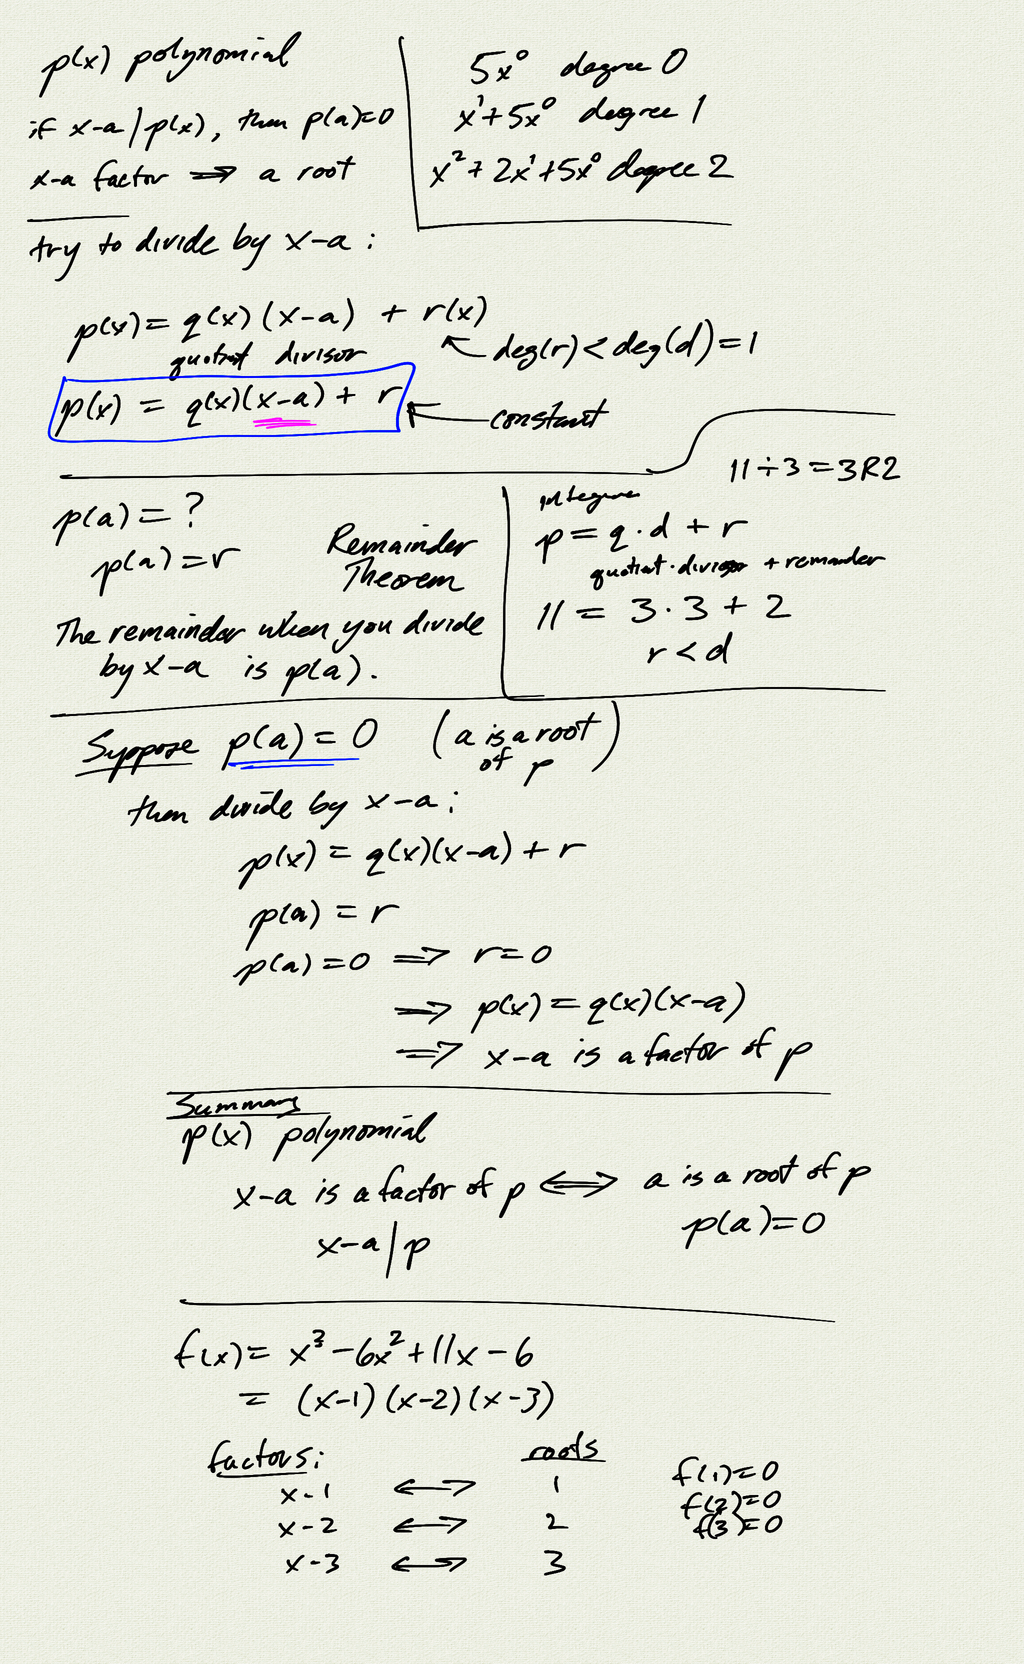 p(x) polynomial
if x-a | p(x), then p(a)=0
x-a factor ⇒ a root
5x⁰ degree 0
x¹+5x⁰ degree 1
x²+2x¹+5x⁰ degree 2
try to divide by x-a :
p(x) = q(x) (x-a) + r(x)
quotient divisor
deg(r) < deg(d) = 1
p(x) = q(x)(x-a) + r
constant
p(a) = ?
p(a) = r
Remainder
Theorem
The remainder when you divide
by x-a is p(a).
11 ÷ 3 = 3R2
integers
p = q · d + r
quotient · divisor + remainder
11 = 3 · 3 + 2
r < d
Suppose p(a) = 0 (a is a root
of p)
then divide by x-a :
p(x) = q(x)(x-a) + r
p(a) = r
p(a) = 0 ⇒ r = 0
⇒ p(x) = q(x)(x-a)
⇒ x-a is a factor of p
Summary
p(x) polynomial
x-a is a factor of p ⇔ a is a root of p
x-a | p
p(a) = 0
f(x) = x³ - 6x² + 11x - 6
= (x-1)(x-2)(x-3)
factors: roots
x-1 ↔ 1 f(1)=0
x-2 ↔ 2 f(2)=0
f(3)=0
x-3 ↔ 3